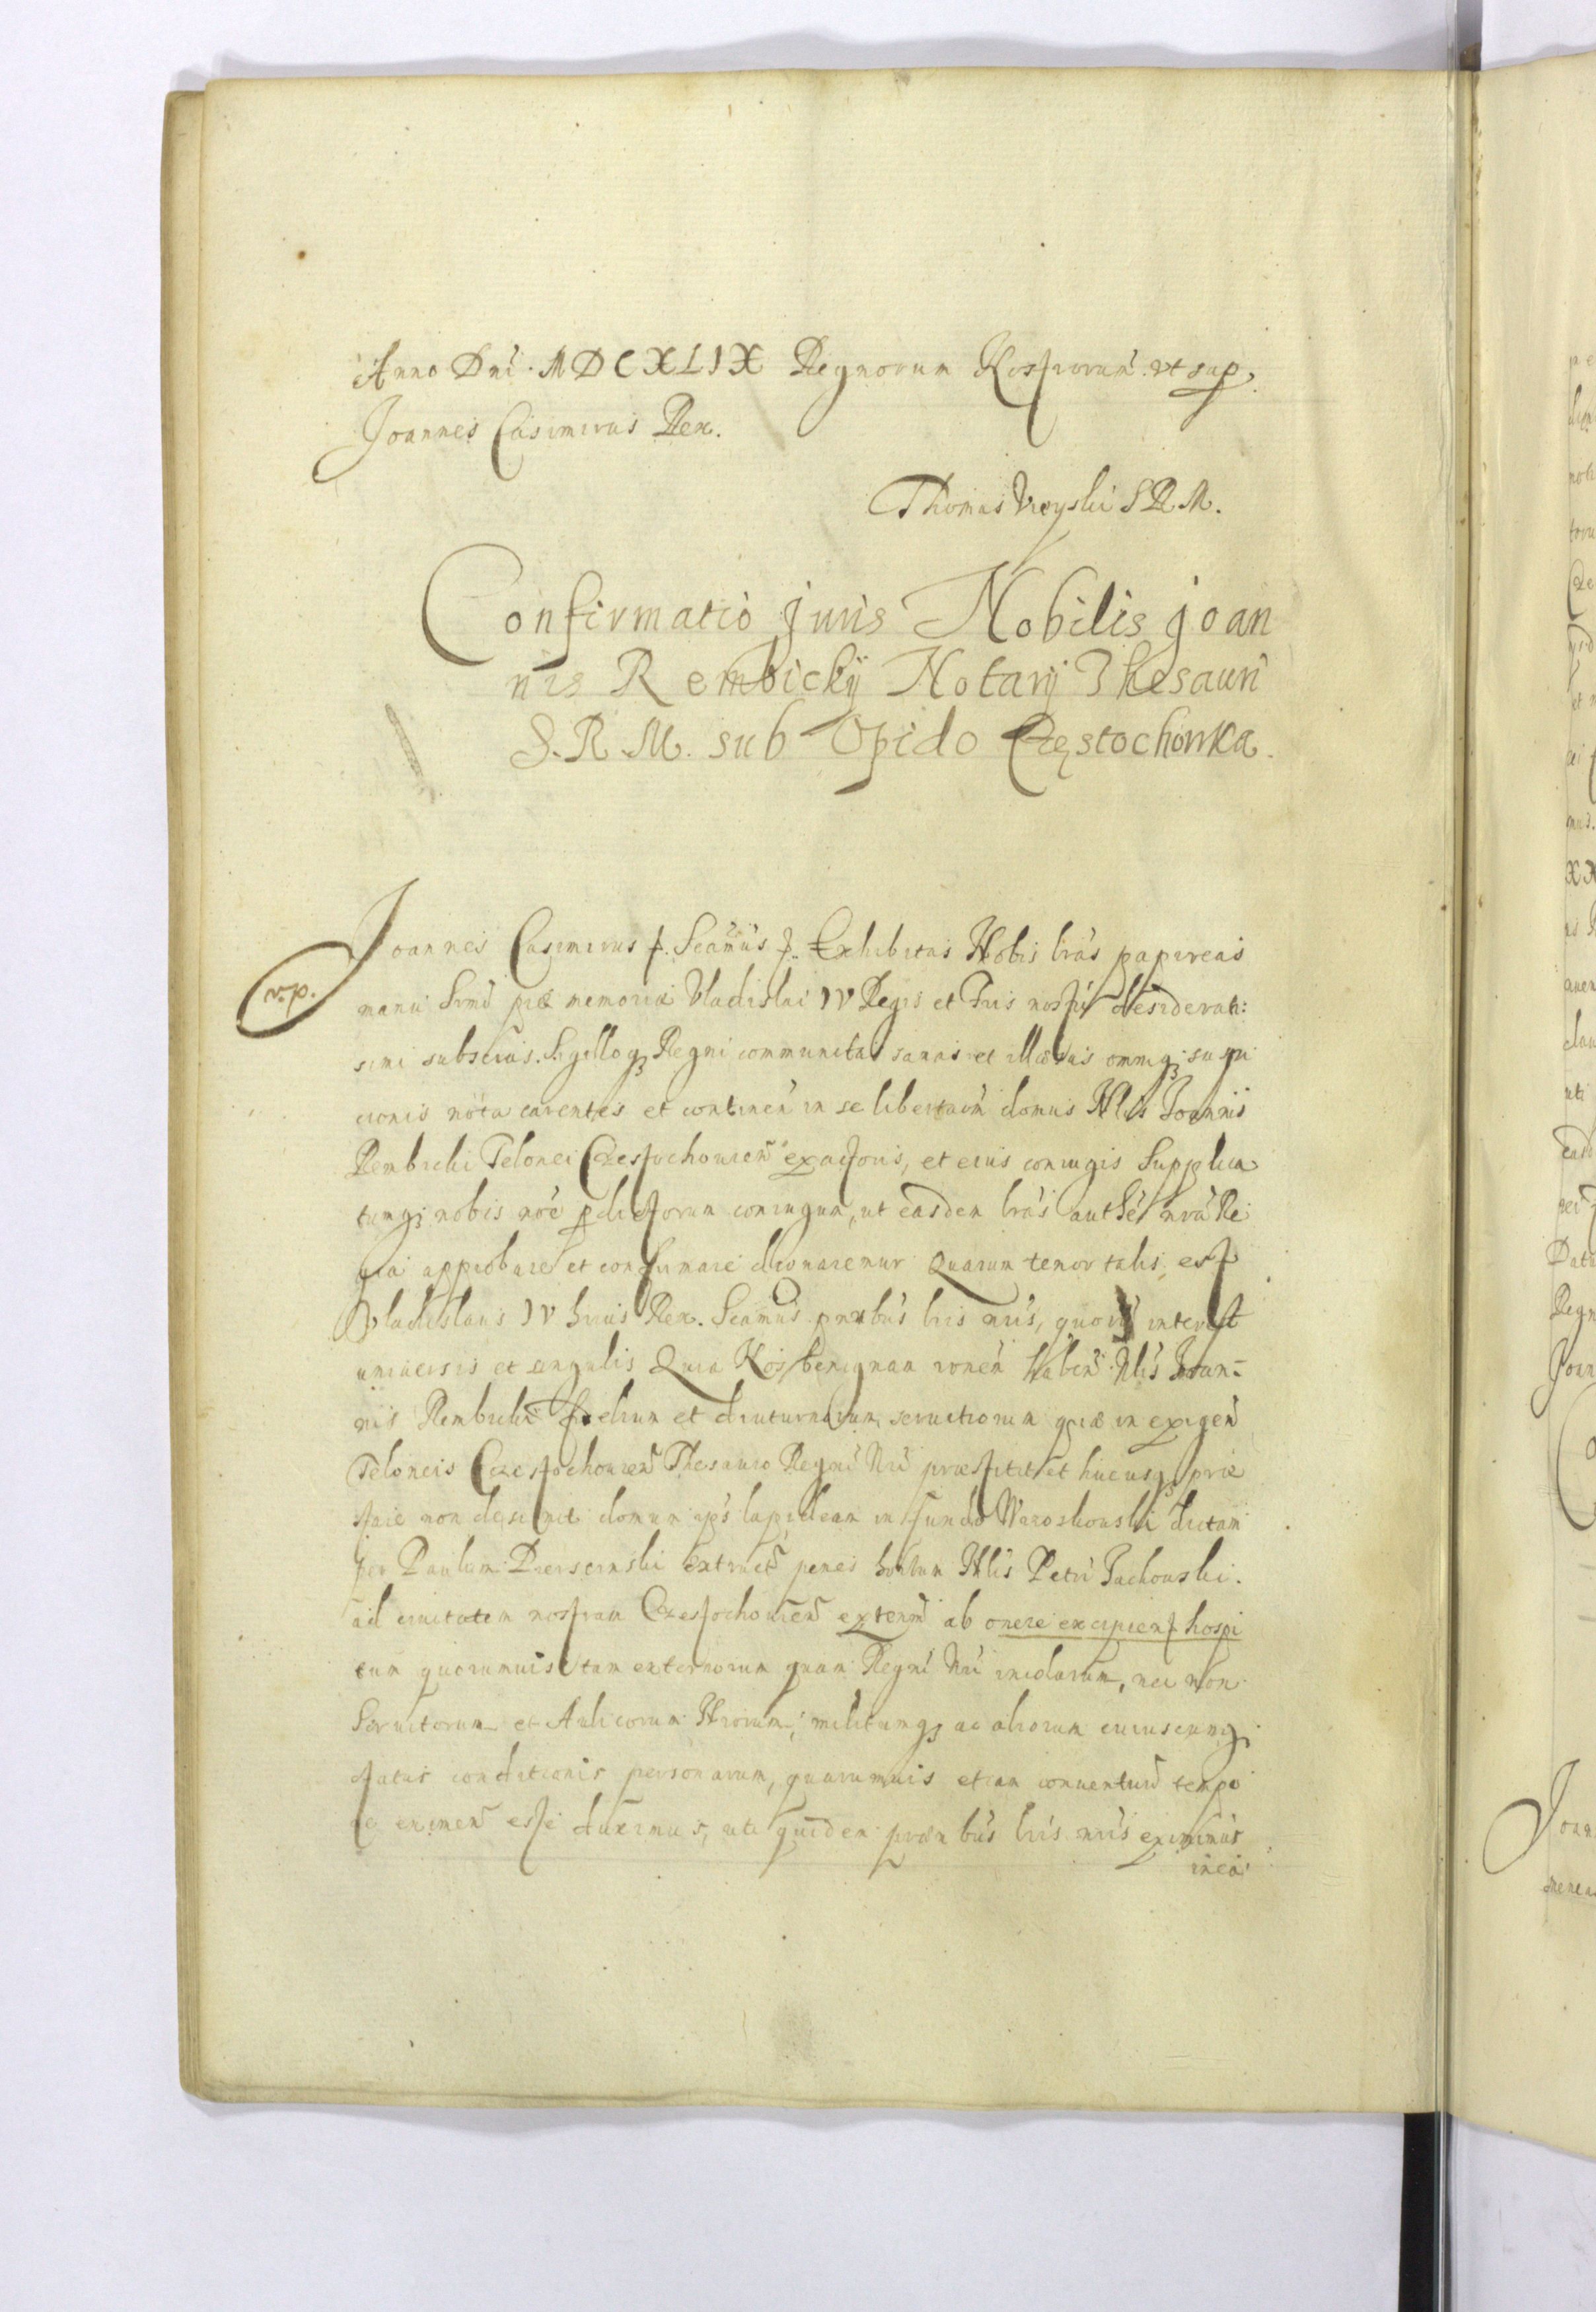 Anno Dni. MDCXLIX Regnorum Nostrorum ut sup.
Joannes Casimirus Rex.
Thomas Uieyski SRM.
Confirmatio Juris Nobilis Joan
nis Rembickÿ Notarij Thesauri
S. R. M. sub Opido Częstochowka.
Joannes Casimirus Exhibitas Nobis lras papireas
v.p.
manu Srmi piæ memoriæ Vladislai IV Regis et Fris nostri desiderati:
simi subscris. Sigilloq3 Regni communitas sanas et illæsas omniq3 suspi
cionis nota carentes et continen in se libertaōn domus Nlis Joannis
Rembicki Telonei Czestochouien exactoris, et eius coniugis Supplica
tumq3 nobis noe pdictorum coniugum, ut easdem lras authe nra Re
gia approbare et confirmare dignaremur Quarum tenor talis est
Vladislaus IV Rex. Scamus pntbus lris nris, quorū interest
uniuersis et singulis Quia Nos benignam ronem haben Nlis Joan-
nis Rembicki fidelium et diuturnorum seruitiorum quæ in exigen
Teloneis Czestochouien Thesauro Regni Nri præstitit et hucusq3 præ
stare non desinit domum ips lapideam in fundo Waroshouski dictam
per Paulum extruct penes hortum Nlis Petri Jachouski.
ad ciuitatem nostram Czestochouien ab onere excipien hospi
tum quorumuis tam externorum quam Regni Nri incolarum, nec non
Seruitorum et Aulicorum Nrorum, militumq3 ac aliorum cuiuscunq3
status conditionis personarum, quorumuis etiam conuentuū tempo
re eximen esse duximus, uti quidem præn bus lris nris eximimus
inea